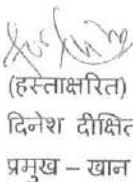 (हस्ताक्षरित)
दिनेश दीक्षित
प्रमुख – खान